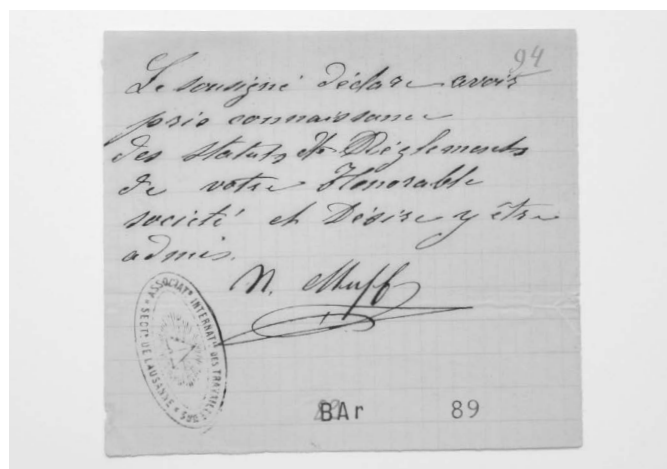 94
Le sousigné déclare avoir
pris connaissance
des Statuts & Réglements
de votre Honorable
société et Désire y être
admis.
N. Muff
ASSOCIATN INTERNATLE DES TRAVAILLEURS
SECTN DE LAUSANNE
BAr 89